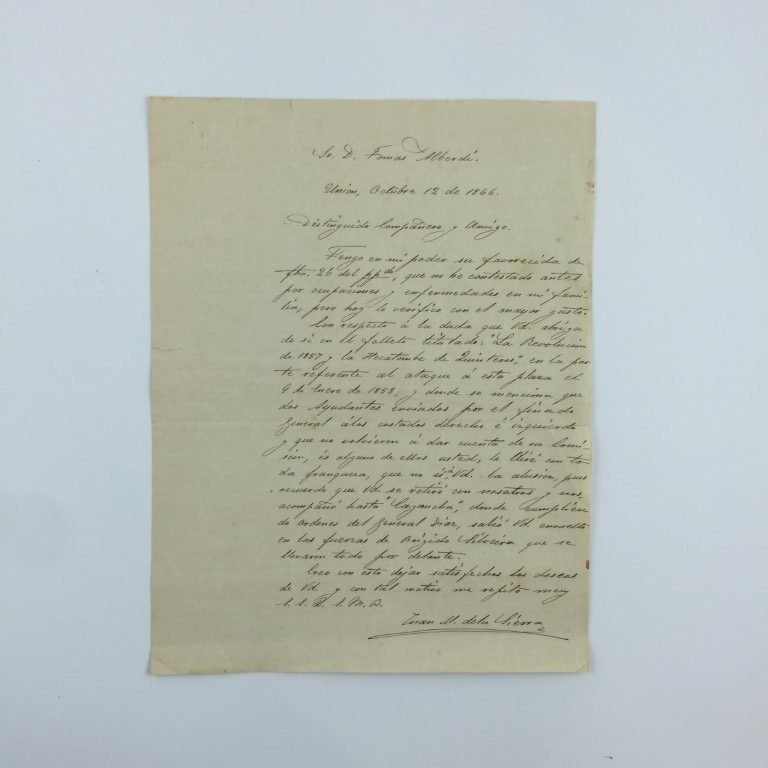 Sr. D. Tomas Alberdi.
Union, Octubre 12 de 1866.
Distinguido Compañero y Amigo.
Tengo en mi poder su favorecida de
fha. 26 del ppdo, que no he contestado antes
por ocupaciones y enfermedades en mi fami-
lia, pero hoy lo verifico con el mayor gusto.
Con respecto á la duda que Vd. abriga
de si en el folleto titulado: "La Revolucion
de 1857 y la Hecatombe de Quinteros", en la par
te referente al ataque á esta plaza el
9 de Enero de 1858, y donde se menciona que
dos Ayudantes enviados por el finado
General á los costados derecho é izquierdo
y que no volvieron á dar cuenta de su Comi-
sión, és alguno de ellos usted, le diré con to-
da franqueza, que no és á Vd. la alusion, pues
recuerdo que Vd. se retiró con nosotros y nos
acompañó hasta "Cagancha", donde cumplien
do ordenes del General Diaz, salió Vd. envuelto
en las fuerzas de Brígido Silveira que se
llevaron todo por delante.
Creo con esto dejar satisfechos los deseos
de Vd. y con tal motivo me repito muy
S. S. Q. S. M. B.
Juan M. de la Sierra